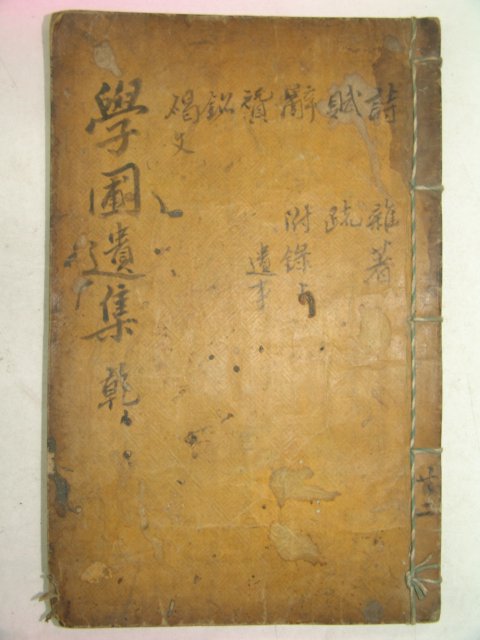 詩 雜著
賦 疏
辭 附錄上
贊 遺事
銘
碣文
學圃遺集 乾
共二